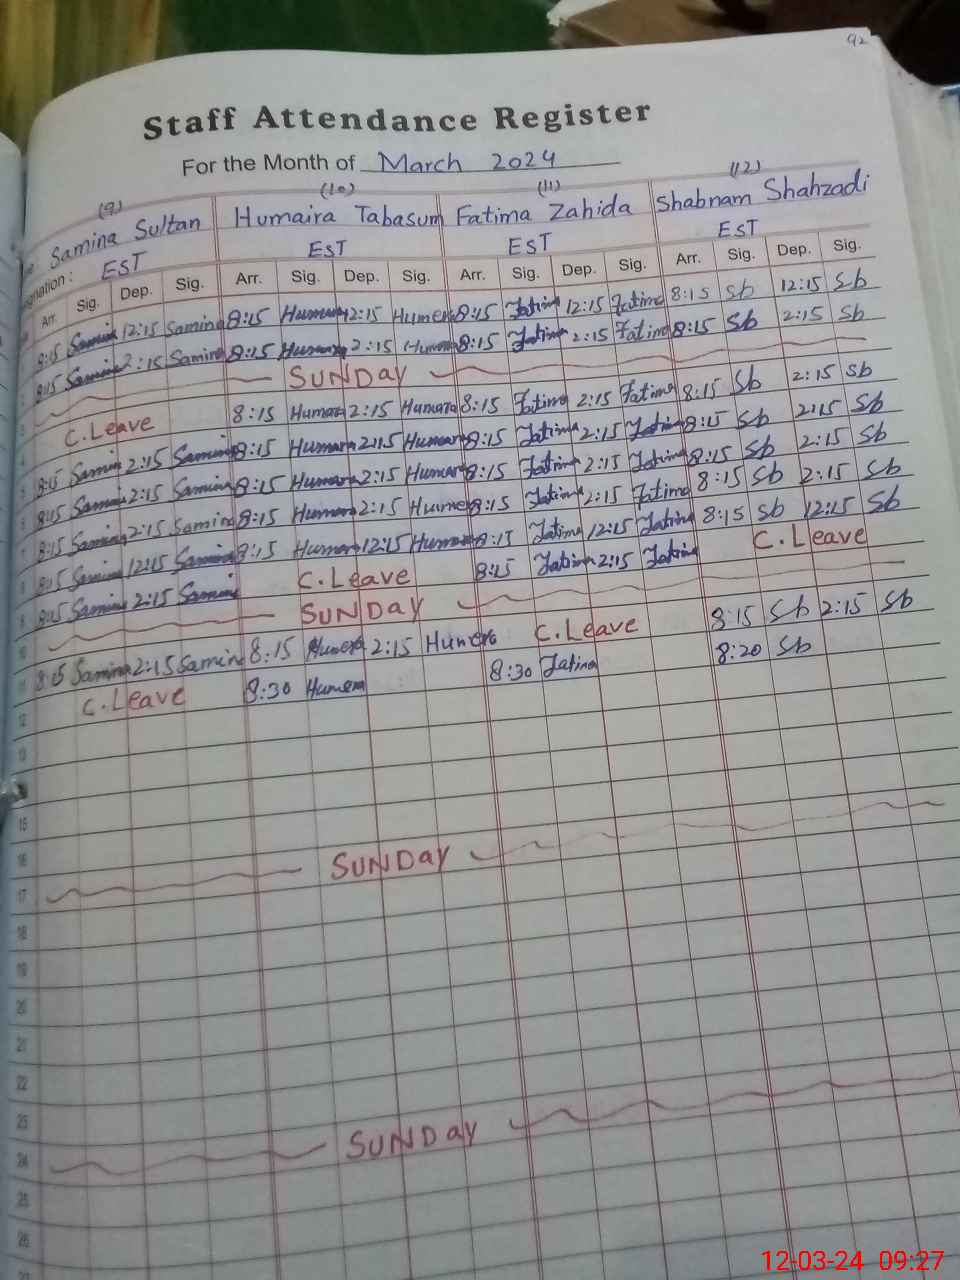 92
Staff Attendance Register
For the Month of March 2024
(9) (10) (11) (12)
Samina Sultan Humaira Tabasum Fatima Zahida Shabnam Shahzadi
EST EST EST EST
Arr. Sig. Dep. Sig. Arr. Sig. Dep. Sig. Arr. Sig. Dep. Sig. Arr. Sig. Dep. Sig.
8:15 Samina 12:15 Samina 8:15 Humera 12:15 Humera 8:15 Fatima 12:15 Fatima 8:15 Sb 12:15 Sb
8:15 Samina 2:15 Samina 8:15 Humera 2:15 Humera 8:15 Fatima 2:15 Fatima 8:15 Sb 2:15 Sb
3 SUNDAY
4 C.Leave 8:15 Humera 2:15 Humera 8:15 Fatima 2:15 Fatima 8:15 Sb 2:15 Sb
5 8:15 Samina 2:15 Samina 8:15 Humera 2:15 Humera 8:15 Fatima 2:15 Fatima 8:15 Sb 2:15 Sb
6 8:15 Samina 2:15 Samina 8:15 Humera 2:15 Humera 8:15 Fatima 2:15 Fatima 8:15 Sb 2:15 Sb
7 8:15 Samina 2:15 Samina 8:15 Humera 2:15 Humera 8:15 Fatima 2:15 Fatima 8:15 Sb 2:15 Sb
8 8:15 Samina 12:15 Samina 8:15 Humera 12:15 Humera 8:15 Fatima 12:15 Fatima 8:15 Sb 12:15 Sb
9 8:15 Samina 2:15 Samina C.Leave 8:15 Fatima 2:15 Fatima C.Leave
10 SUNDAY
11 8:15 Samina 2:15 Samina 8:15 Humera 2:15 Humera C.Leave 8:15 Sb 2:15 Sb
12 C.Leave 8:30 Humera 8:30 Fatima 8:20 Sb
13
15
16
17 SUNDAY
18
19
20
21
22
23
24 SUNDAY
25
26
12-03-24 09:27